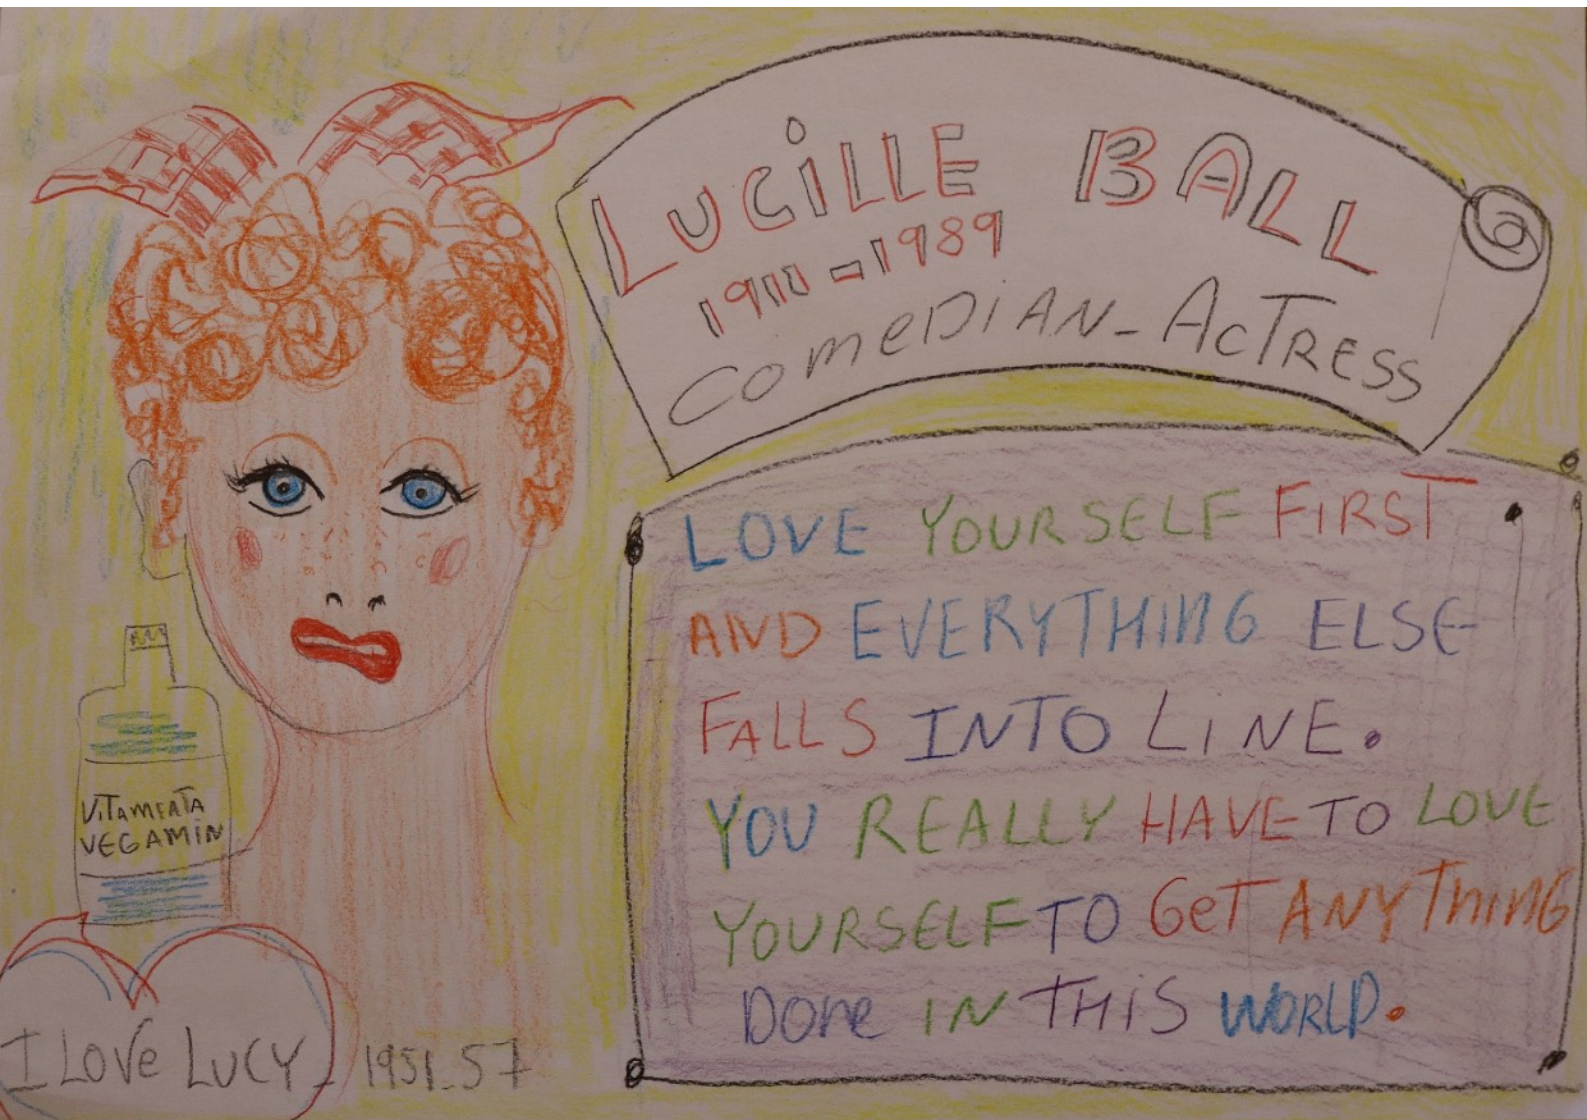 LUCILLE BALL
1911-1989
COMEDIAN-ACTRESS
LOVE YOURSELF FIRST
AND EVERYTHING ELSE
FALLS INTO LINE.
YOU REALLY HAVE TO LOVE
YOURSELF TO GET ANYTHING
DONE IN THIS WORLD.
VITAMEATA
VEGAMIN
I LOVE LUCY_1951_57